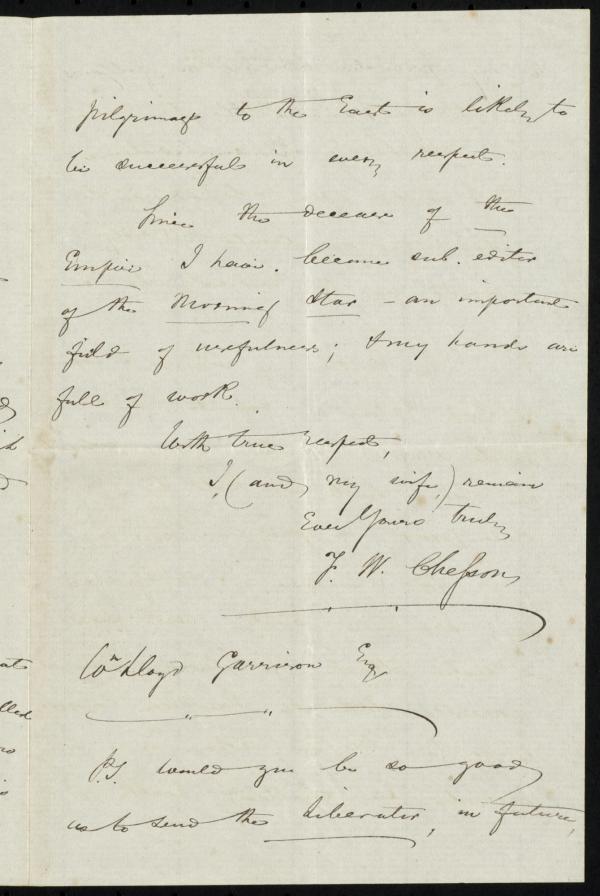 pilgrimage to the East is likely to
be successful in every respect.
Since the decease of the
Empire I have. become sub. editor
of the Morning Star – an important
field of usefulness; & my hands are
full of work.
With true respect,
I, (and my wife,) remain
Ever Yours truly,
F. W. Chesson
Wm Lloyd Garrison Esq
P.S. would you be so good
as to send the Liberator, in future,